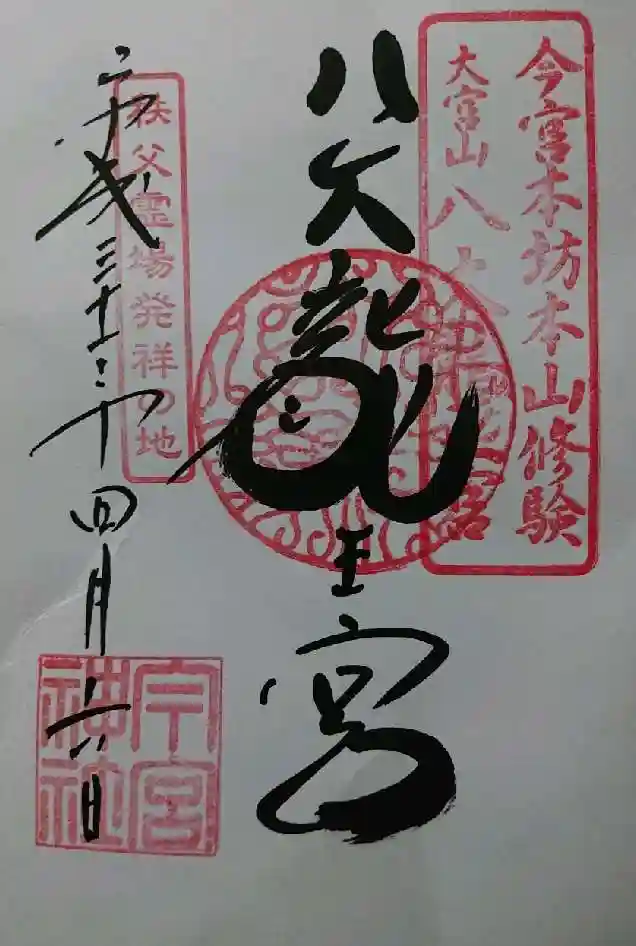 今宮本坊本山修験
大宮山八大龍王宮
八大龍王宮
秩父霊場発祥の地
平成三十一年四月六日
今宮
神社